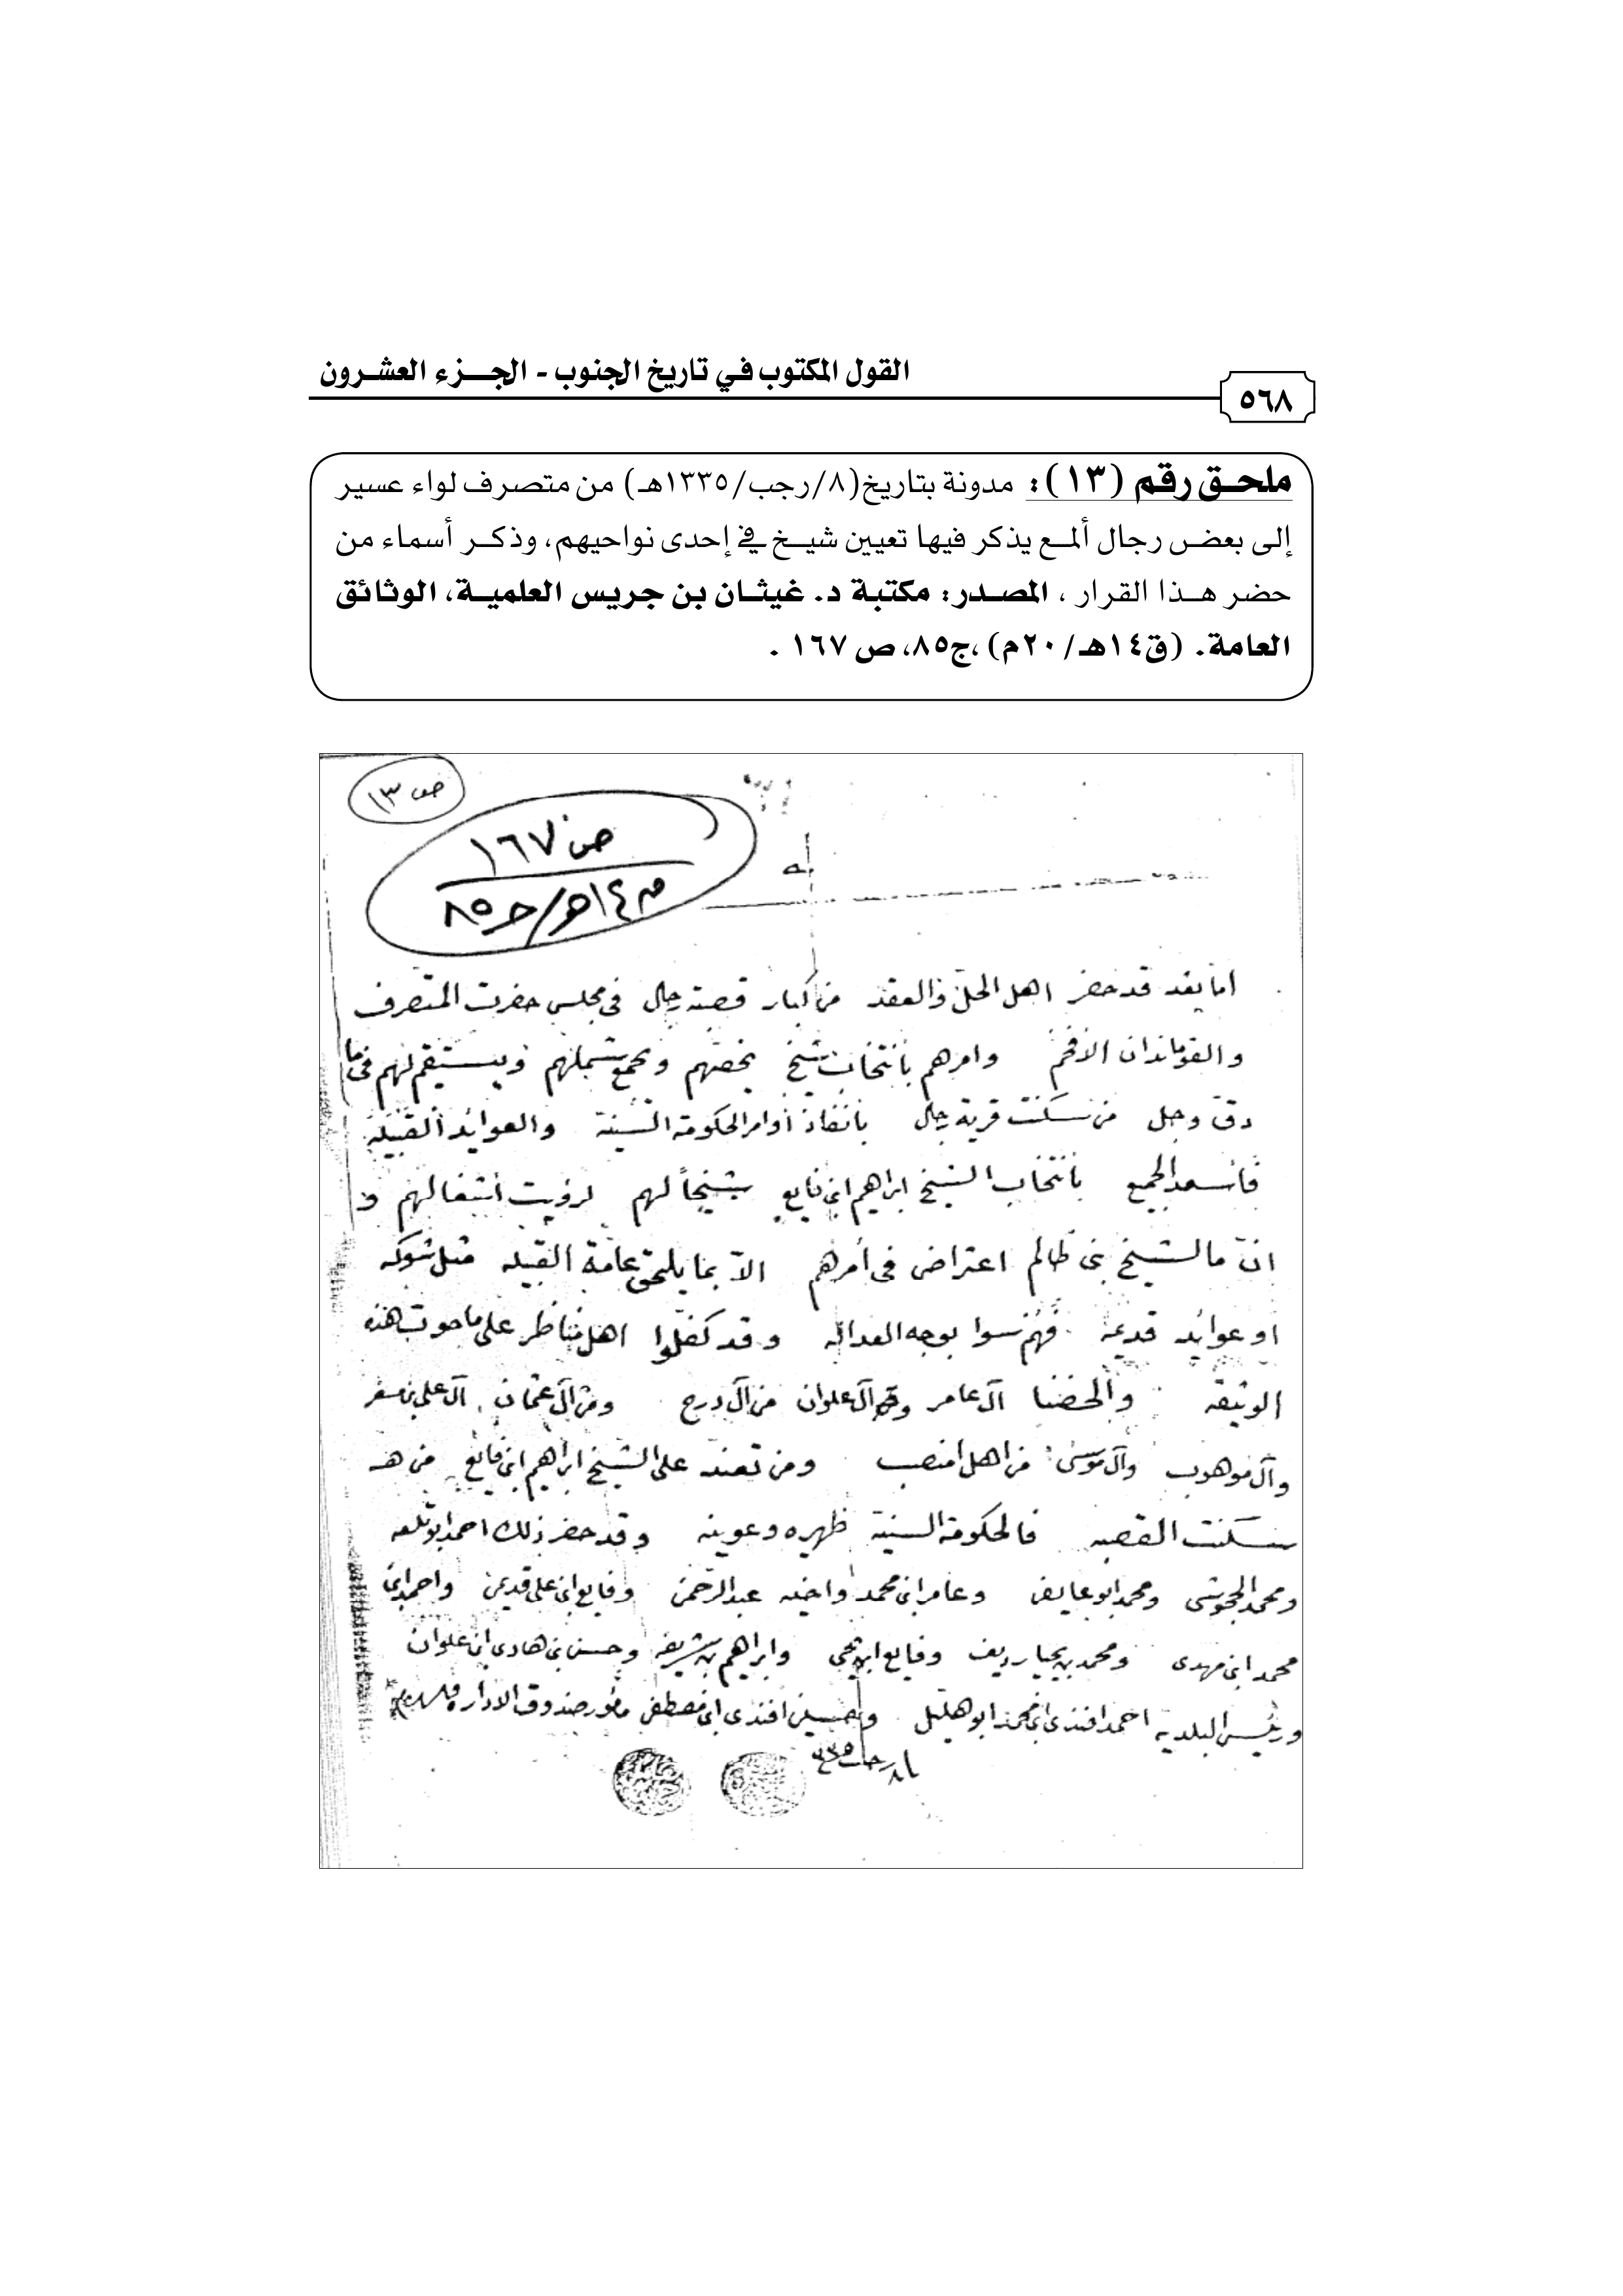 القول المكتوب في تاريخ الجنوب - الجـــزء العشـرون
٥٦٨
ملحـق رقم (١٣): مدونة بتاريخ(٨/رجب/١٣٣٥هـ) من متصرف لواء عسير
إلى بعض رجال ألمـع يذكر فيها تعيين شيـخ في إحدى نواحيهم، وذكـر أسماء من
حضر هـذا القرار ، المصـدر: مكتبة د. غيثـان بن جريس العلميـة، الوثائق
العامة. (ق١٤هـ/٢٠م)،ج٨٥، ص ١٦٧ .
ص ١٣
ص ١٦٧
ق ١٤هـ/ج ٨٥
اما بعد قد حضر اهل الحل والعقد من كبار قصبة رجال فى مجلس حضرت المتصرف
والقوماندان الافخم وامرهم بانتخاب شيخ يخصهم ويجمع شملهم ويستقيم لهم فى ما
دق وجل من سكنت قرية رجال بانفاذ أوامر الحكومة السنية والعوايد القبيلة
فأسعد الجميع بانتخاب الشيخ ابراهيم ابن فايع شيخاً لهم لرؤيت أشغالهم و
انّ ما لشيخ بنى ظالم اعتراض فى أمرهم الاّ بما يلحق عامة القبيله مثل شوكه
او عوايد قديمة بوجه العداله وقد كفلوا اهل مناظر على ما حوت هذه
الوثيقه آل عامر آل علوان من آل درج ومن آل عثمان آل على بن مسفر
وآل موهوب وآل موسى من اهل امنصب ومن تعند على الشيخ ابراهيم ابن فايع من هـ
سكنت القصبه فالحكومة السنية ظهيره وعوينه وقد حضر ذلك احمد ابو تلعه
ومحمد ومحمد ابو عايض وعامر ابن محمد واخيه عبدالرحمن وفايع ابن على قديمى واحمد ابن
محمد ابن مهدى ومحمد بن يحيا رديف وفايع ابن يحيى وابراهيم بن شريفه وحسن بن هادى ابن علوان
ورئيس البلدية احمد افندى ابن محمد ابو هليل وحسين افندى ابن مصطفى مأمور صندوق الاداره